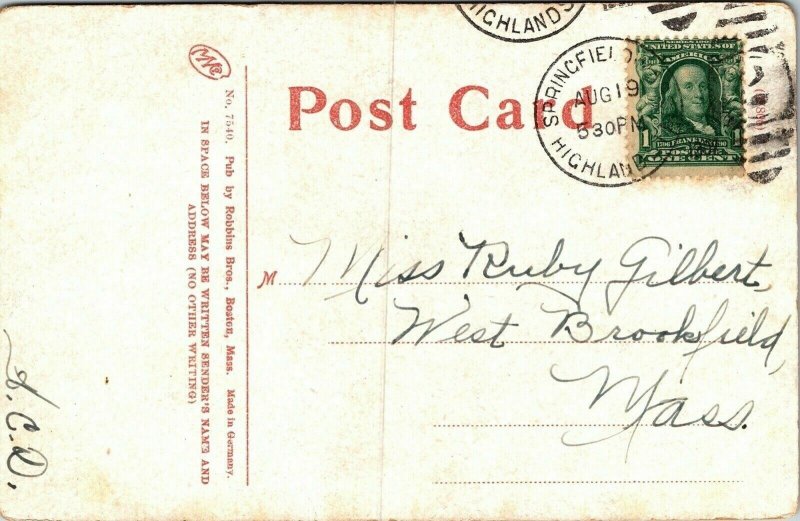 HIGHLANDS
Post Card
SPRINGFIELD
AUG 19
530 PM
HIGHLAND
UNITED STATES OF
AMERICA
1 1
1706 FRANKLIN 1790
POSTAGE
ONE CENT
No. 7540. Pub by Robbins Bros., Boston, Mass. Made in Germany.
IN SPACE BELOW MAY BE WRITTEN SENDER'S NAME AND
ADDRESS (NO OTHER WRITING)
M
Miss Ruby Gilbert,
West Brookfield,
Mass.
A. C. D.